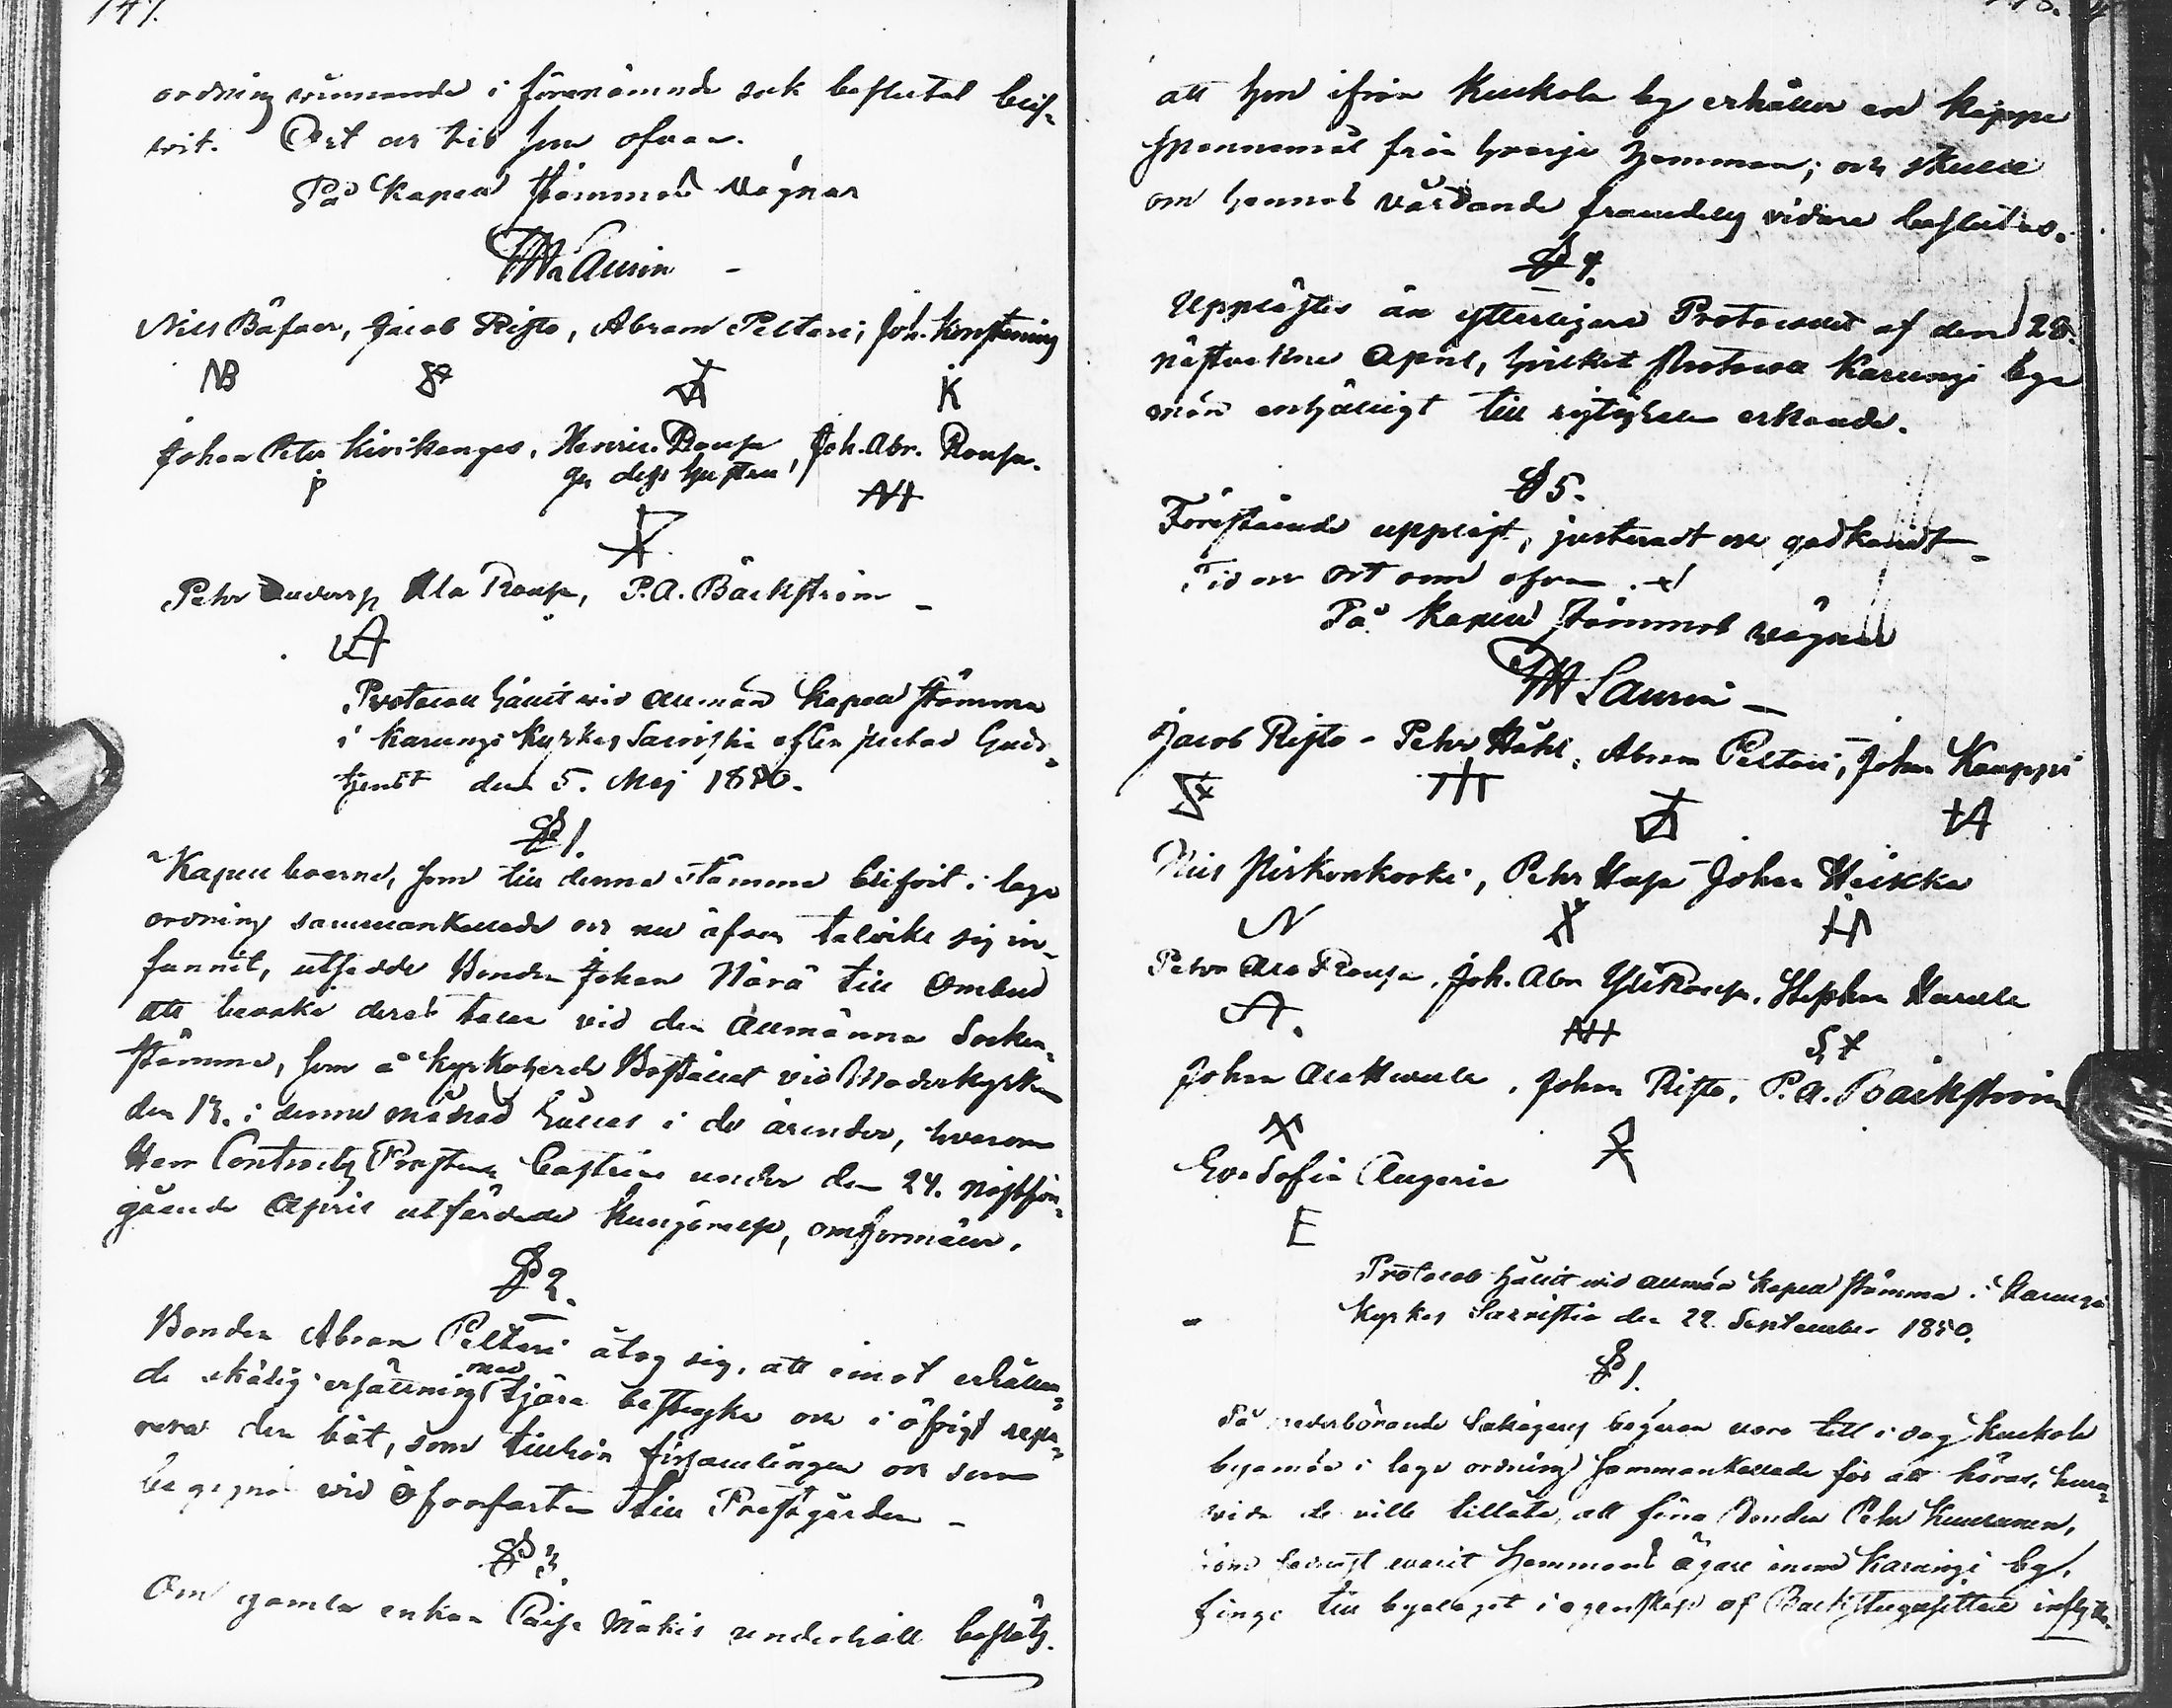 147.
ordning rummande i förenämnde sak beslutat blif-
wit. Ort och tid som ofvan.
På Kapell stämmans vägnar
Laurin
Nils Bäfver, Jacob Risto, Abram Peltari, Joh.
NB
K
Johan Peter Kivikangas, Henric Roupa, Joh. Abr. Roupa.
och dess hustru
P
Pehr Ala Roupa, P. A. Bäckström
A
Protocoll hållit wid allmän Kapell stämma
i Karungi Kyrkas Sacristia efter slutad Guds-
tjenst den 5. Maj 1850.
§ 1.
Kapell boerne, som till denna stämma blifvit i laga
ordning sammankallade och nu äfven talrikt sig in-
funnit, utsedde Bonden Johan Närä till Ombud
att bevaka deras talan vid den allmänna Socken-
stämma, som å Kyrkoherde Bostället vid Moderkyrkan
den 13. i denna månad hålles i de ärender, hvarom
Herr Contracts Prosten Castrén under den 24. nästför-
gående April utfärdade Kungörelse, omförmäler.
§ 2.
Bonden Abram Peltari åtog sig, att emot erhållan-
de skälig ersättning med tjära bestryka och i öfrigt repa-
rera den båt, som tillhör församlingen och som
begagnas vid öfverfarten till Prestgården
§ 3.
Om gamla enkan Caisa Mäkis underhåll beslöts,
att hon ifrån Kuckola by erhåller en kappe
spannemål från hvarje hemman; och skulle
om hennes vårdande framdeles vidare beslutas.
§ 4.
Upplästes än ytterligare Protocollet af den 28.
nästvekne April, hvilket Protocoll Karungi bya
män enhälligt till rigtigheten erkände.
§ 5.
Förestående uppläst, justeradt och godkändt
Tid och ort som ofvan.
På Kapell stämmans vägnar
Laurin
Jacob Risto - Pehr Håhl, Abram Peltari, Johan Kauppi
H
A
Nils Niskonkoski, Pehr Hapa Johan Heikka
N
H
Pehr Ala Roupa, Joh. Abr Yli Roupa, Stephan
A.
Johan Ala, Johan Risto, P. A. Bäckström
Eva Sofia
E
Protocoll hållit wid allmän Kapell stämma i Karungi
Kyrkas Sacristia den 22 September 1850.
§ 1.
På vederbörande Sakägares begäran voro till i dag Kuckola
byamän i laga ordning sammankallade för att höras, huru-
vida de ville tillåta, att förra Bonden Pehr
som warit hemmans ägare inom Karungi by,
finge till byalaget i egenskap af Backstugusittare inflytta